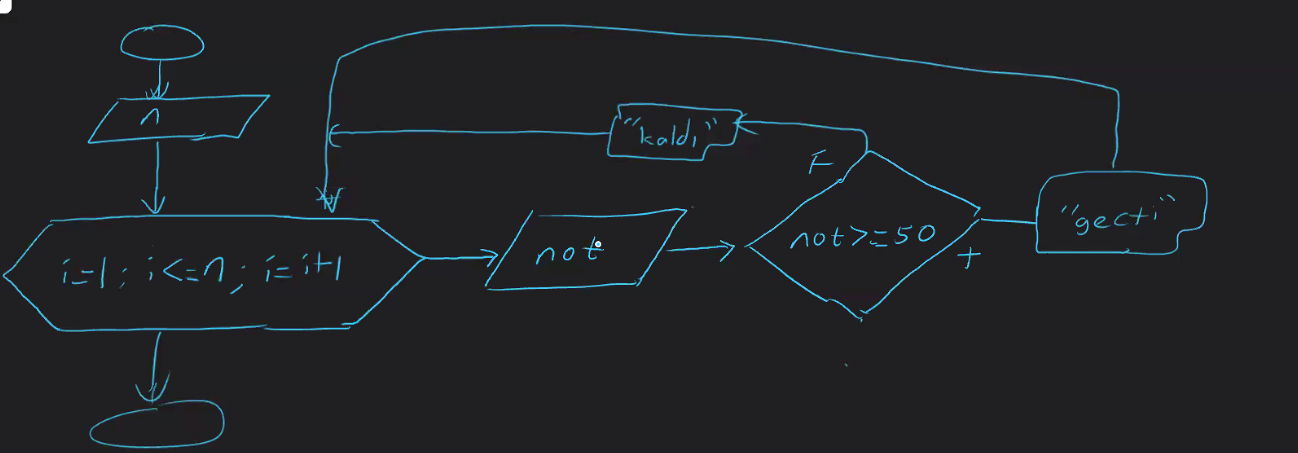 n
i=1; i<=n; i=i+1
not
not>=50
F
"kaldı"
+
"gecti"